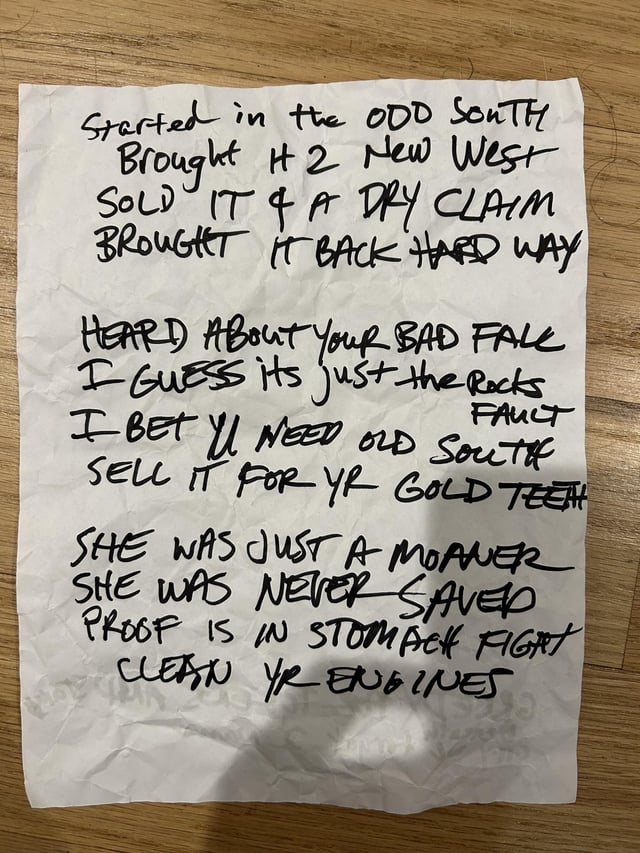 Started in the ODD SouTH
Brought it 2 New West
SOLD IT & A DRY CLAIM
BROUGHT IT BACK HARD WAY
HEARD ABOUT YOUR BAD FALL
I GUESS its just the Rocks
FAULT
I BET YU NEED OLD SOUTH
SELL IT FOR YR GOLD TEETH
SHE WAS JUST A MOANER
SHE WAS NEVER SAVED
PROOF IS IN STOMACH FIGHT
CLEAN YR ENGINES